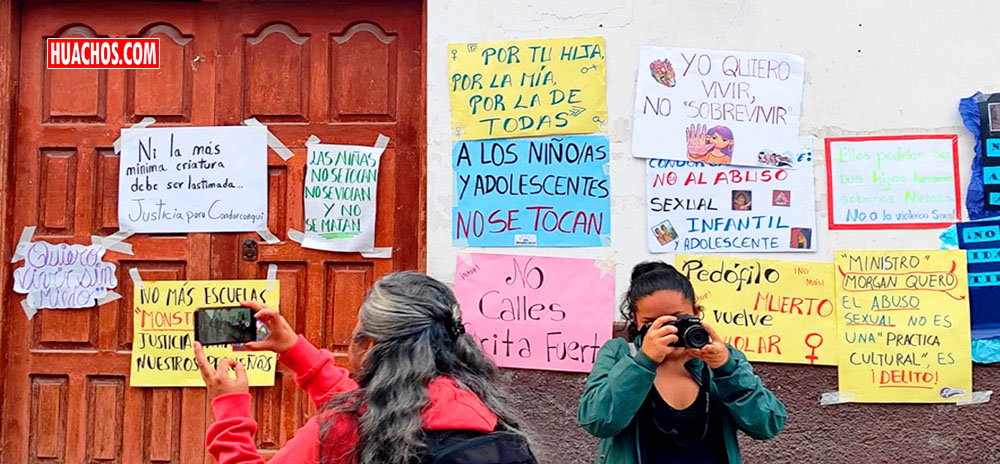 HUACHOS.COM
Ni la más
mínima criatura
debe ser lastimada...
Justicia para Condorcanqui
LAS NIÑAS
NO SE TOCAN
NO SE VICIAN
Y NO
SE MATAN
Quiero
vivir sin
Miedo
NO MÁS ESCUELAS
"MONSTR
JUSTICIA
NUESTRO
POR TU HIJA,
POR LA MÍA,
POR LA DE
TODAS
A LOS NIÑO/AS
Y ADOLESCENTES
NO SE TOCAN
No
Calles
Grita Fuerte
YO QUIERO
VIVIR,
NO "SOBREVIVIR"
NO AL ABUSO
SEXUAL
INFANTIL
Y ADOLESCENTE
Pedófilo
MUERTO
vuelve
violar
¡No Más!
Ellos podrían ser
tus hijos hermanas
sobrinos Nietas
No a la violencia Sexual
"MINISTRO"
MORGAN QUERO
EL ABUSO
SEXUAL NO ES
UNA "PRACTICA
CULTURAL", ES
¡DELITO!